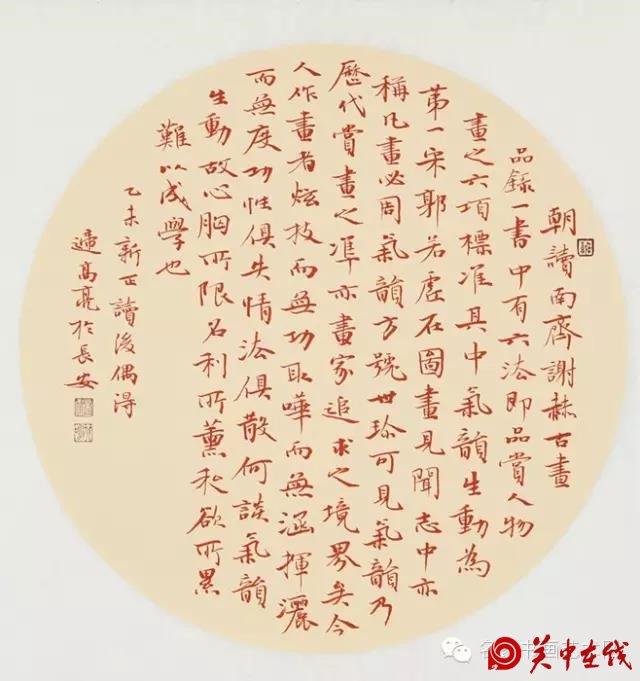 朝讀南齊謝赫古畫
品錄一書中有六法即品賞人物
畫之六項標准其中氣韻生動為
第一宋郭若虛在圖畫見聞志中亦
稱凡畫必周氣韻方號世珍可見氣韻乃
歷代賞畫之準亦畫家追求之境界矣今
人作畫者炫技而無功取嘩而無涵揮灑
而無度功性俱失情法俱散何談氣韻
生動故心胸所限名利所薰私欲所累
難以成學也
乙未新正讀後偶得
高亮於長安
关中在线